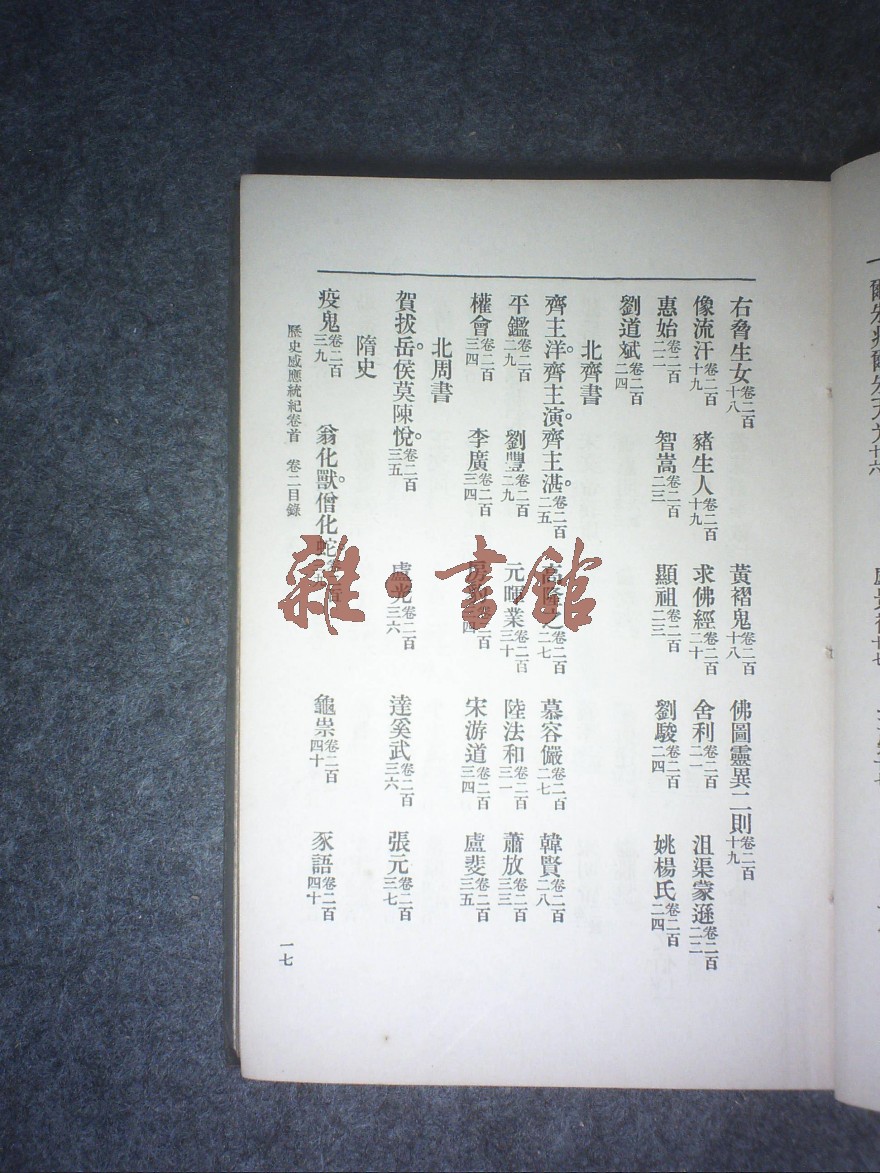 右脅生女卷二百十八 黃褶鬼卷二百十八 佛圖靈異二則卷二百十九
像流汗卷二百十九 豬生人卷二百十九 求佛經卷二百二十 舍利卷二百二一 沮渠蒙遜卷二百二二
惠始卷二百二二 智嵩卷二百二三 顯祖卷二百二三 劉駿卷二百二四 姚楊氏卷二百二四
劉道斌卷二百二四
北齊書
齊主洋。齊主演。齊主湛。卷二百二五 高隆之卷二百二七 慕容儼卷二百二七 韓賢卷二百二八
平鑑卷二百二九 劉豐卷二百二九 元暉業卷二百三十 陸法和卷二百三一 蕭放卷二百三三
權會卷二百三四 李廣卷二百三四 卷二百三四 宋游道卷二百三四 盧斐卷二百三五
北周書
賀拔岳。侯莫陳悅。卷二百三五 盧光卷二百三六 達奚武卷二百三六 張元卷二百三七
隋史
疫鬼卷二百三九 翁化獸。僧化蛇 龜祟卷二百四十 豕語卷二百四十
歷史感應統紀卷首 卷二目錄
一七
雜·書館